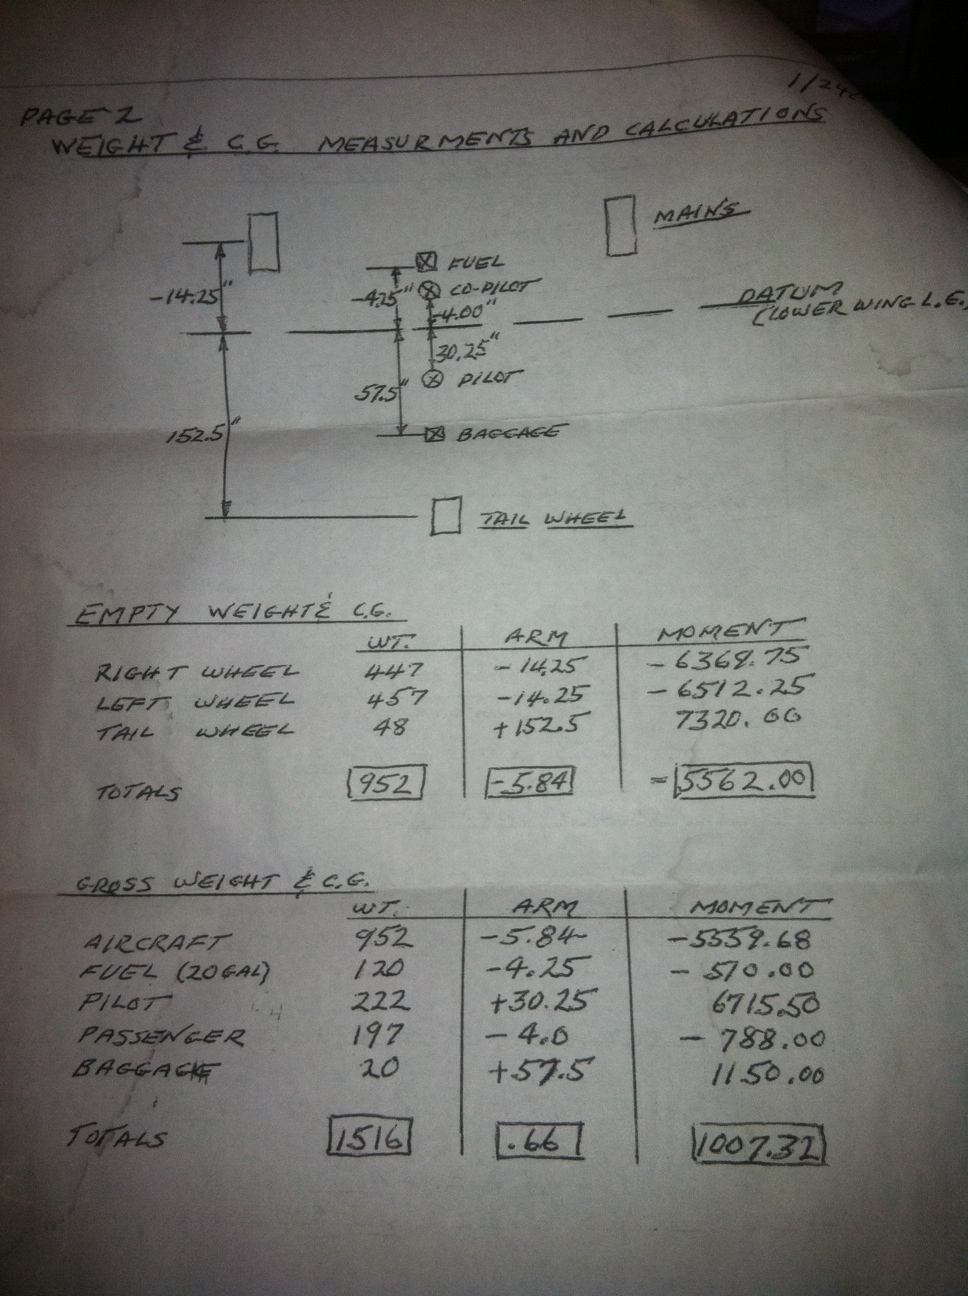 PAGE 2
WEIGHT & C.G. MEASURMENTS AND CALCULATIONS
MAINS
FUEL
-14.25"
-4.25"
CO-PILOT
-4.00"
DATUM
(LOWER WING L.E.)
30.25"
57.5"
PILOT
152.5"
BAGGAGE
TAIL WHEEL
EMPTY WEIGHT & C.G.
WT. ARM MOMENT
RIGHT WHEEL 447 -14.25 -6369.75
LEFT WHEEL 457 -14.25 -6512.25
TAIL WHEEL 48 +152.5 7320.00
TOTALS 952 -5.84 -5562.00
GROSS WEIGHT & C.G.
WT. ARM MOMENT
AIRCRAFT 952 -5.84 -5559.68
FUEL (20GAL) 120 -4.25 -510.00
PILOT 222 +30.25 6715.50
PASSENGER 197 -4.0 -788.00
BAGGAGE 20 +57.5 1150.00
TOTALS 1516 .66 1007.32